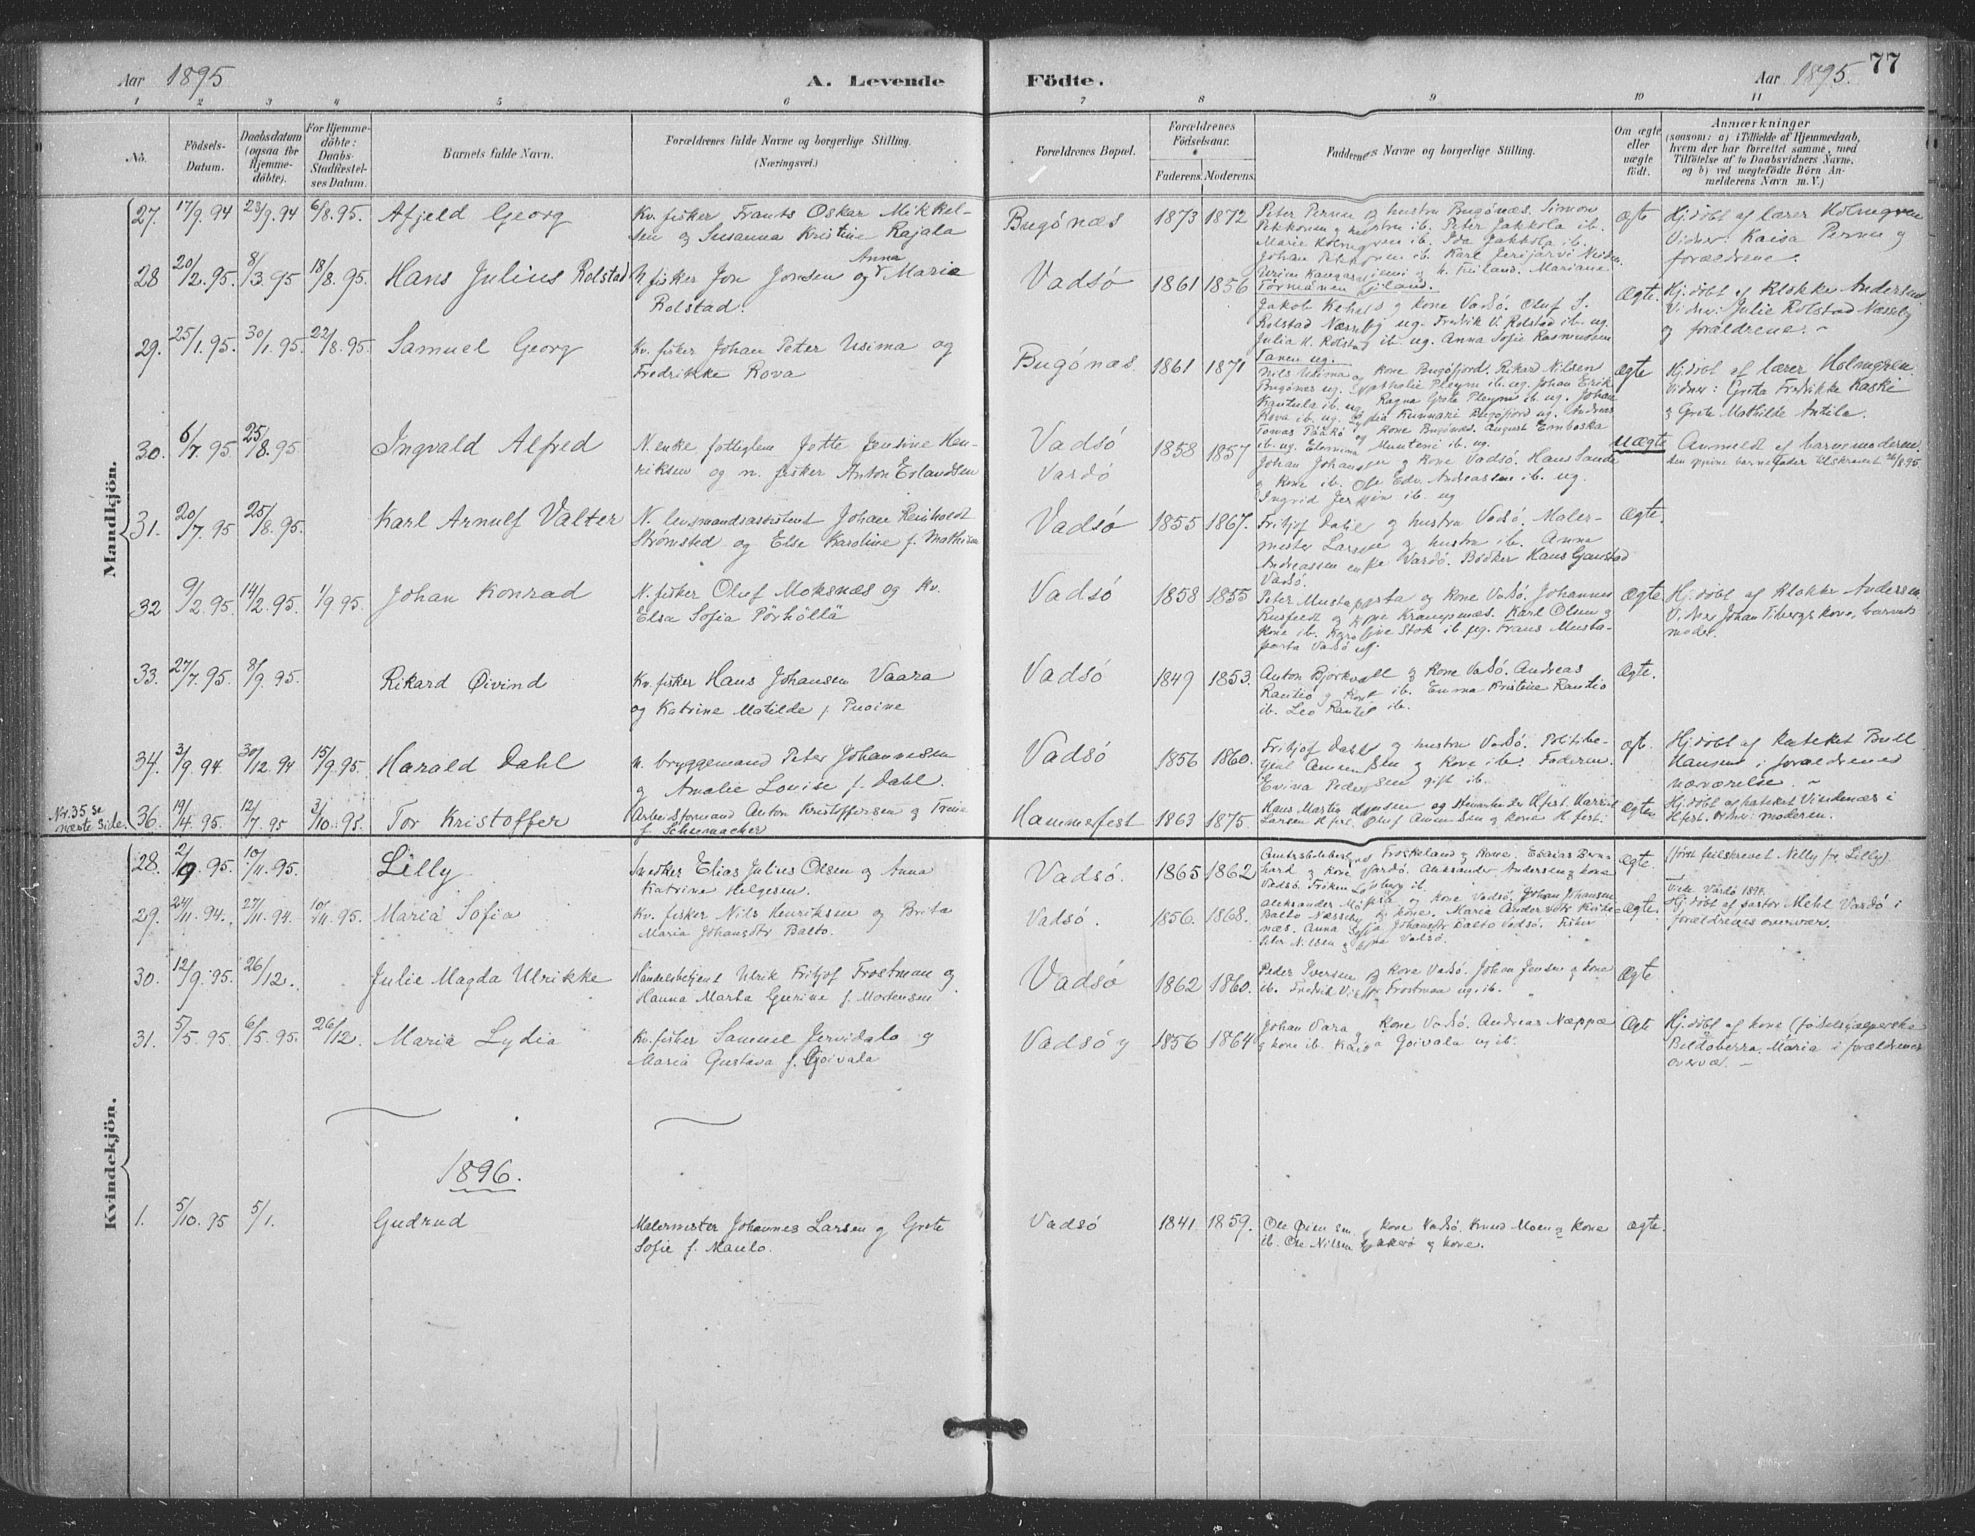 Aar 1895
A. Levende
Födte.
Aar 1895.
77
1 2 3 4 5 6 7 8 9 10 11
No.
Födsels-
Datum.
Daabsdatum
(ogsaa for
Hjemme-
döbte).
For Hjemme-
döbte:
Daabs-
Stadfæstel-
ses Datum.
Barnets fulde Navn.
Forældrenes fulde Navne og borgerlige Stilling.
(Næringsvei.)
Forældrenes Bopæl.
Forældrenes
Födselsaar.
Faderens. Moderens.
Faddernes Navne og borgerlige Stilling.
Om ægte
eller
uægte
födt.
Anmærkninger
(saasom: a) i Tilfælde af Hjemmedaab,
hvem der har forrettet samme, med
Tilföielse af to Daabsvidners Navne,
og b) ved uægtefödte Börn An-
melderens Navn m. V.)
Mandkjön.
27. 17/9.94 23/9.94 6/8.95. Afjeld Georg
Kv. fisker Frants Oskar Mikkel-
sen og Susanna Kristine Rajala
Bugönæs 1873 1872
Peter Pernu og hustru Bugönæs. Simon
Pekkonen og hustru ib. Peter Jakkola ib.
Marie Holmgren ib. Ida Jakkola ib.
Johan Pekkonen ib. Karl
ægte
Hj.döbt af lærer Holmgren
Vidner: Kaisa Pernu og
forældrene.
28 20/2.95. 8/3.95 18/8.95. Hans Julius Rolstad
N fisker Jon Jonsen og Anna Maria
Rolstad.
Vadsö 1861 1856
Jakob og kone Vadsö. Oluf S.
Rolstad Næsseby ug. Fredrik V. Rolstad ib. ug.
Julia H. Rolstad ib ug. Anna Sofie Rasmussen
Tanen ug.
Ægte.
Hj.döbt af Klokker Andersen
Vidner: Julie Rolstad Næsseby
og forældrene. –
29. 25/1.95. 30/1.95. 22/8.95. Samuel Georg
Kv. fisker Johan Peter Usima og
Fredrikke Rova
Bugönæs. 1861 1871
Nils Usima og kone Bugöfjord. Rikard Nilsen
Bugönes ug. Nathalie Pleym ib. ug. Johan Erik
Kantula ib. ug. Ragna Grete Pleym ib. ug. Johan
Rova ib. ug. Bugöfjord ug. Andreas
Tomas og kone Bugönæs. August
ib. ug. ib. ug.
ægte
Hjdöbt af lærer Holmgren.
Vidner: Greta Fredrikke Kaski
og Grete Mathilde Antila.
30. 6/7.95 25/8.95 Ingvald Alfred
N. enke Jotte Jensine Hen-
riksen og n. fisker Anton Erlandsen
Vadsö
Vardö
1858 1857
Johan Johansen og kone Vadsö. Hans Sande
og kone ib. Ole Edv. Andreassen ib. ug.
Ingrid ib. ug
uægte
Anmeldt af barnemoderen.
31. 20/7.95 25/8.95. Karl Arnulf Valter
N. lensmandsassistent Johan Reinholdt
Strömsted og Else Karoline f. Mathisen
Vadsö 1855 1867.
Fritjof Dahl og hustru Vadsö. Maler-
mester Larsen og hustru ib. Anna
Andreassen enke Vardö. Bödker Hans Gamstad
Vadsö.
ægte.
32 9/2.95. 14/2.95. 1/9.95. Johan Konrad
N. fisker Oluf Moksnæs og Kv.
Elsa Sofia Pörhöllä
Vadsö 1858 1855
Peter Mustaparta og kone Vadsö. Johannes
Rusfeldt og kone Krampenæs. Karl Olsen og
kone ib. Karoline Stok ib ug. Frans Musta-
parta Vadsö ug.
Ægte.
Hj.döbt af Klokker Andersen
Vidner Johan kone, barnets
moder.
33. 27/7.95. 8/9.95. Rikard Öivind
Kv. fisker Hans Johansen Vaara
og Katrine Matilde f. Puoine
Vadsö 1849 1853.
Anton Björkvall og kone Vadsö. Andreas
Rautio og kone ib. Emma Kristine Rautio
ib. Leo Rautio ib.
Ægte.
34. 3/9.94. 30/12.94 15/9.95. Harald Dahl
n. bryggemand Peter Johannesen
og Amalie Louise f. Dahl.
Vadsö 1856 1860.
Fritjof Dahl og hustru Vadsö. Politibe-
tjent og kone ib. Faderen.
Evina Pedersen gift ib.
ægte.
Hj.döbt af Kateket Bull
Hansen i forældrenes
nærværelse –
Nr. 35 se
næste side.
36. 19/4.95. 12/7.95 3/10.95. Tor Kristoffer
Arbeidsformand Anton Kristoffersen og Trine
f. Schumacher
Hammerfest 1863 1875.
ægte
Hj.döbt af kateket Vindenæs i
Hfest. Vidner: moderen.
Kvindekjön.
28. 2/9.95. 10/11.95. Lilly
Snedker Elias Julius Olsen og Anna
Katrine Helgesen.
Vadsö. 1865 1862
Froskeland og kone. Esaias Bern-
hard og kone Vardö. Aleksander Andersen og kone
Vadsö. Fröken ib.
Ægte.
(först feilskrevet Nelly for Lilly).
29. 24/11.94. 27/11.94. 10/11.95. Maria Sofia
Kv. fisker Nils Henriksen og Brita
Maria Johansdtr Balto.
Vadsö. 1856. 1868.
Aleksander og kone Vadsö. Johan Johansen
Balto Næsseby og kone. Maria Andersdtr Kirke-
næs. Anna Sofia Johansdtr Balto Vadsö. Fisker
Peter Nilsen og kone Vadsö.
Ægte.
Vide Vardö 1894.
Hj.döbt af pastor Mehl Vardö i
forældrenes overvær.
30. 12/9.95. 26/12. Julie Magda Ulrikke
Handelsbetjent Ulrik Fritjof Frostman og
Hanna Marta Gurine f. Mortensen
Vadsö 1862 1860.
Peder Iversen og kone Vadsö. Johan Jensen og kone
ib. Fredrik Frostman ug. ib.
Ægte
31. 5/5.95. 6/5.95. 26/12. Maria Lydia
Kv. fisker Samme Jervidalo og
Maria Gustava f. Goivala
Vadsö 1856 1864
Johan Vara og kone Vadsö. Andreas Næppæ
og kone ib. Kaisa Goivala ug ib.
Ægte
Hj.döbt af kone (födselshjælperske
Maria i forældrenes
overvær. –
1896.
1. 5/10.95 5/1. Gudrud
Malermester Johannes Larsen og Grete
Sofie f. Maulo.
Vadsö 1841. 1859.
Ole Öiensen og kone Vadsö. Knud Moen og kone
ib. Ole Nilsen og kone.
ægte.